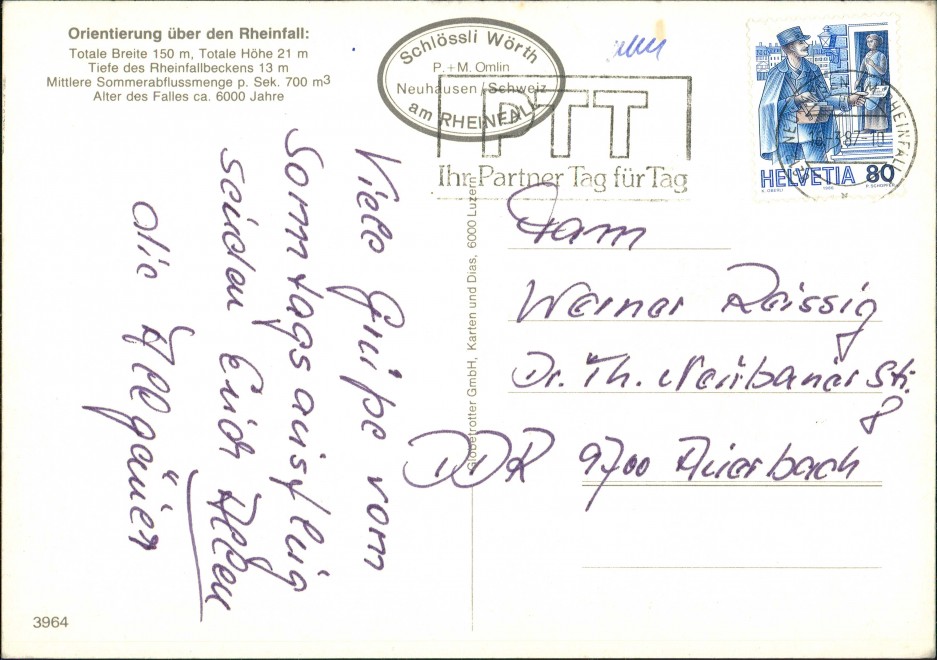 Orientierung über den Rheinfall:
Totale Breite 150 m, Totale Höhe 21 m
Tiefe des Rheinfallbeckens 13 m
Mittlere Sommerabflussmenge p. Sek. 700 m³
Alter des Falles ca. 6000 Jahre
Schlössli Wörth
P. + M. Omlin
Neuhausen / Schweiz
am RHEINFALL
PTT
Ihr Partner Tag für Tag
HELVETIA 80
Viele Grüße vom
Sonntagsausflug
senden Euch Allen
die Allgäuer
Fam
Werner Reissig
Dr. Th. Neubauer Str.
8
DDR 9700 Auerbach
Globetrotter GmbH, Karten und Dias, 6000 Luzern
3964